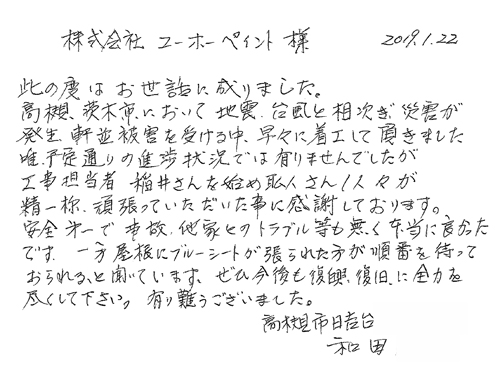 株式会社 ユーホーペイント 様 2019.1.22
此の度は お世話に成りました。
高槻、茨木市において 地震、台風と相次ぎ、災害が
発生、軒並被害を受ける中、早々に着工して頂きました
唯、予定通りの進捗状況では有りませんでしたが
工事担当者 稲井さんを始め職人さん1人々が
精一杯、頑張っていただいた事に感謝しております。
安全第一で 事故、他家とのトラブル等も無く 本当に良かった
です。一方屋根にブルーシートが張られた方が順番を待って
おられる、と聞いています。ぜひ今後も復興、復旧、に全力を
尽くして下さい。有り難うございました。
高槻市日吉台
和田